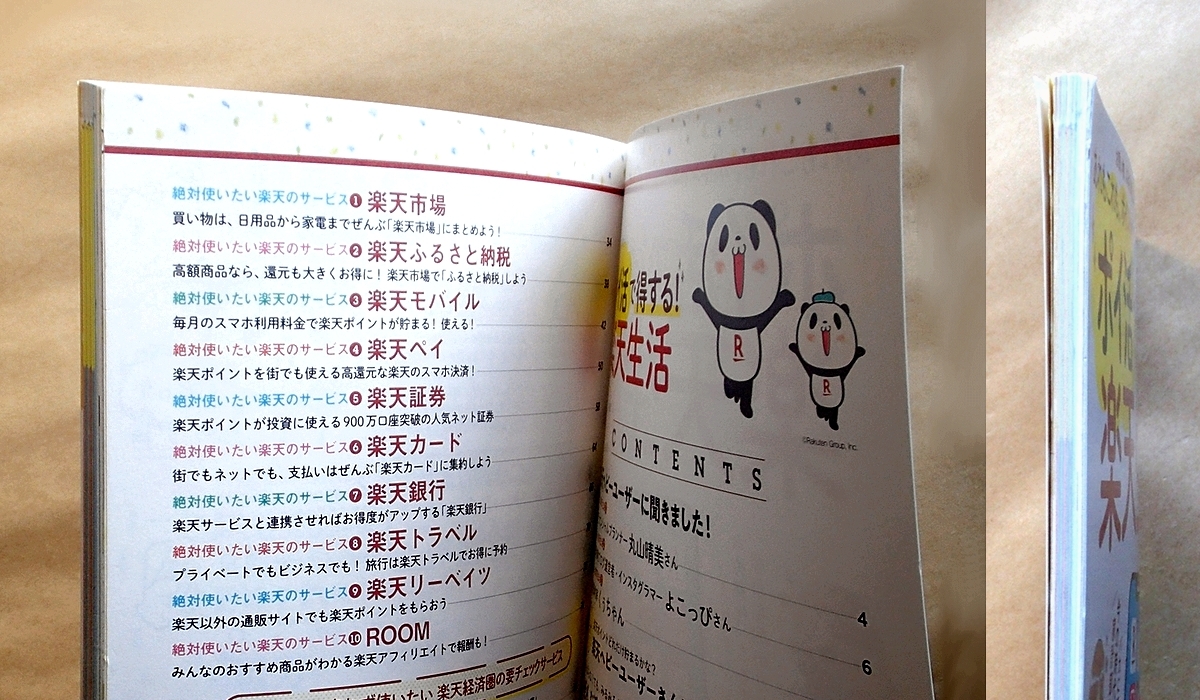 絶対使いたい楽天のサービス❶ 楽天市場
買い物は、日用品から家電までぜんぶ「楽天市場」にまとめよう！ 34
絶対使いたい楽天のサービス❷ 楽天ふるさと納税
高額商品なら、還元も大きくお得に！ 楽天市場で「ふるさと納税」しよう 38
絶対使いたい楽天のサービス❸ 楽天モバイル
毎月のスマホ利用料金で楽天ポイントが貯まる！ 使える！ 42
絶対使いたい楽天のサービス❹ 楽天ペイ
楽天ポイントを街でも使える高還元な楽天のスマホ決済！ 50
絶対使いたい楽天のサービス❺ 楽天証券
楽天ポイントが投資に使える900万口座突破の人気ネット証券 58
絶対使いたい楽天のサービス❻ 楽天カード
街でもネットでも、支払いはぜんぶ「楽天カード」に集約しよう 64
絶対使いたい楽天のサービス❼ 楽天銀行
楽天サービスと連携させればお得度がアップする「楽天銀行」
絶対使いたい楽天のサービス❽ 楽天トラベル
プライベートでもビジネスでも！ 旅行は楽天トラベルでお得に予約
絶対使いたい楽天のサービス❾ 楽天リーベイツ
楽天以外の通販サイトでも楽天ポイントをもらおう
絶対使いたい楽天のサービス❿ ROOM
みんなのおすすめ商品がわかる楽天アフィリエイトで報酬も！
使いたい 楽天経済圏の要チェックサービス
活で得する！
天生活
R
R
©Rakuten Group, Inc.
CONTENTS
ビーユーザーに聞きました！
プランナー 丸山晴美さん 4
インスタグラマー よこっぴさん 6
うちゃん
貯まるかな？
楽天ヘビーユーザーさん
ポイ活
楽天